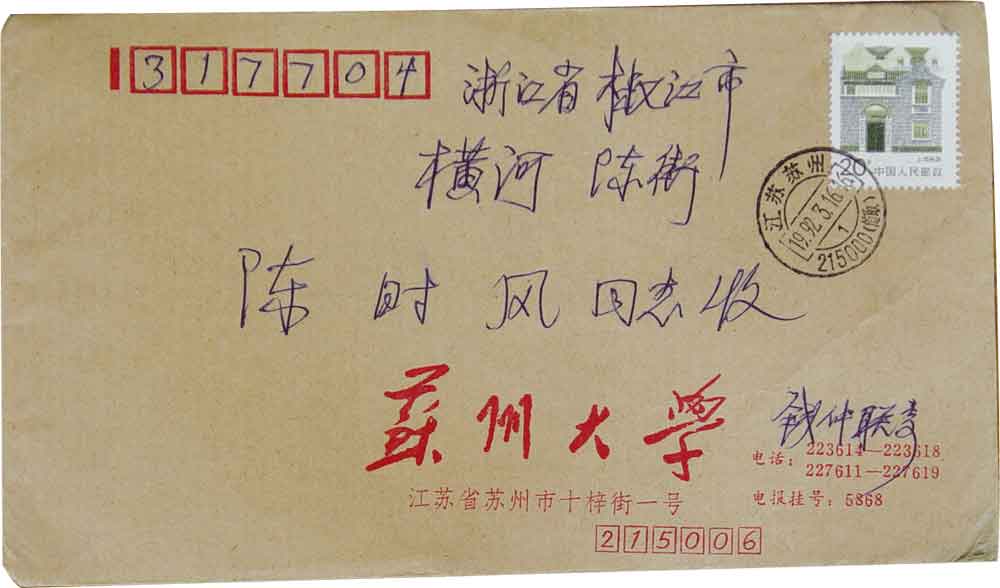 317704
浙江省椒江市
横河 陈街
上海民居
20
中国人民邮政
江苏苏州
1992.3.16
1
215000(筒取)
陈时风同志收
苏州大学
钱仲联寄
电话:223614—223618
227611—227619
江苏省苏州市十梓街一号
电报挂号:5868
215006